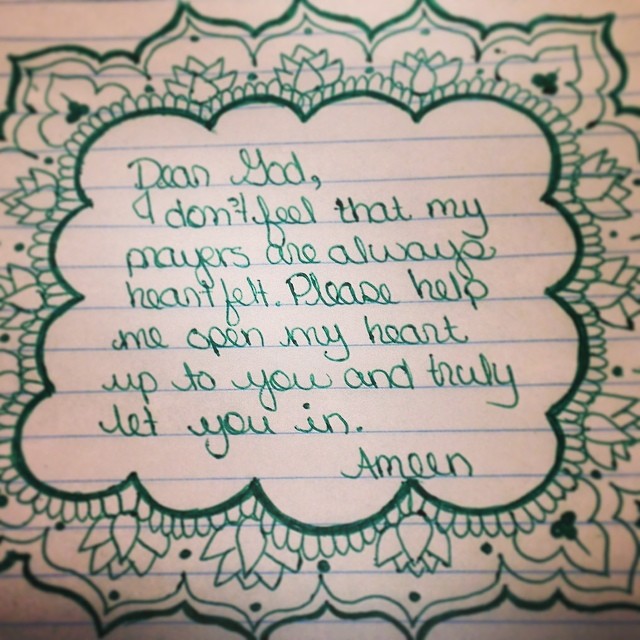 Dear God,
I don't feel that my
prayers are always
heartfelt. Please help
me open my heart
up to you and truly
let you in.
Ameen